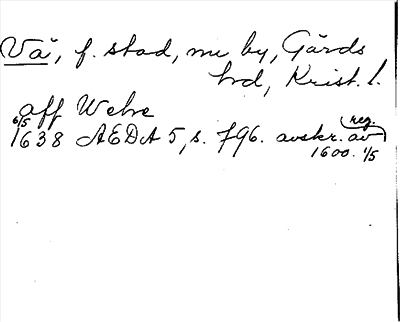 Vä, f. stad, nu by, Gärds
hd, Krist. l.
aff Wehe
6/5 1638 AEDA 5, s. 796. avskr. av reg.
1600. 1/5